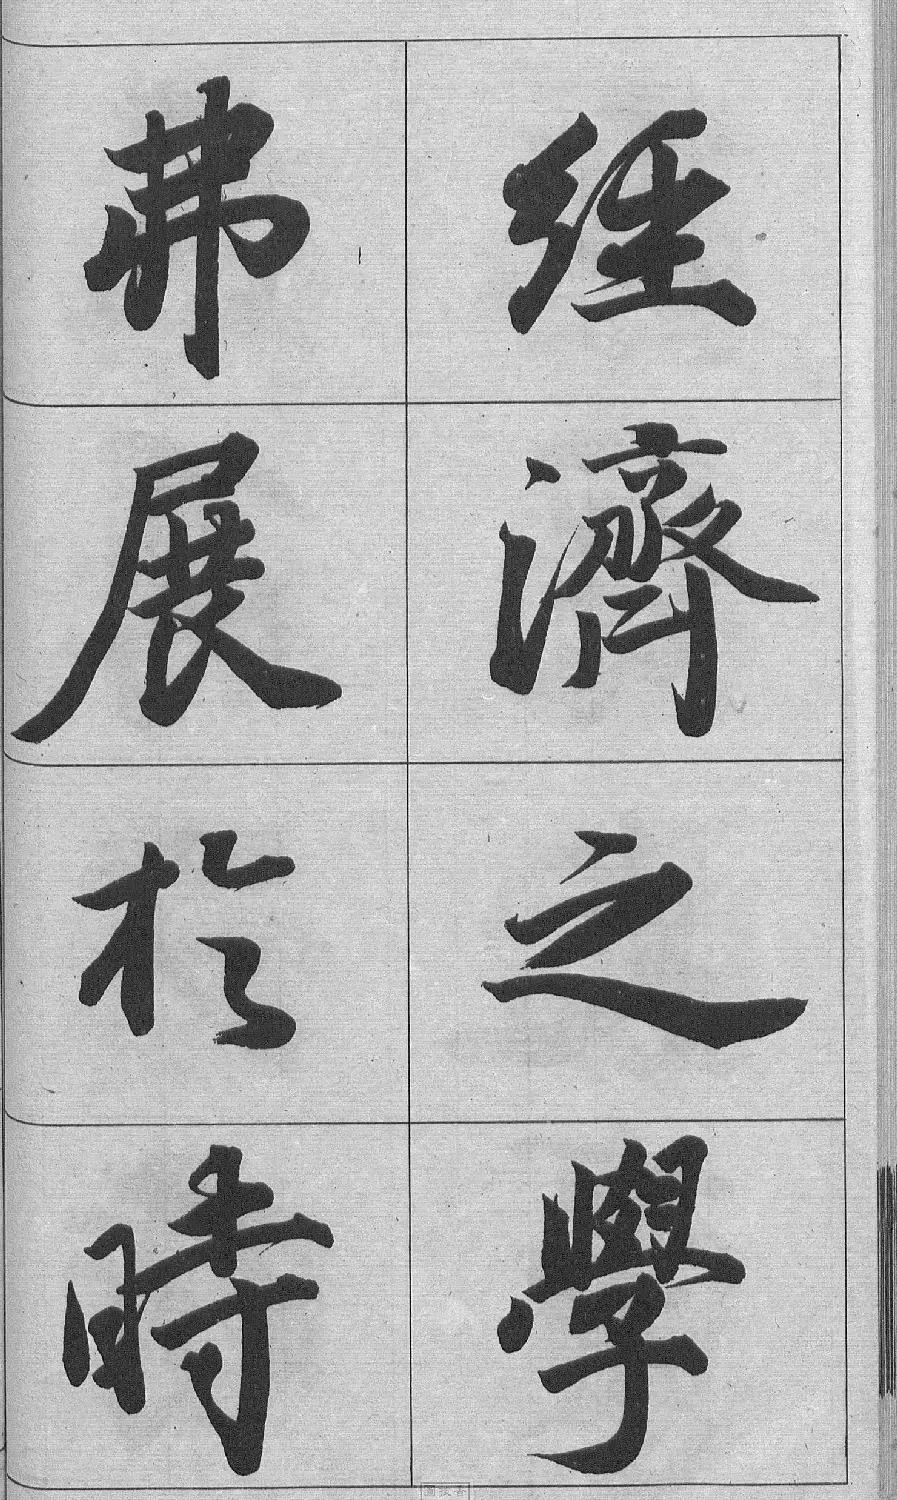 經濟之學
弗展於時